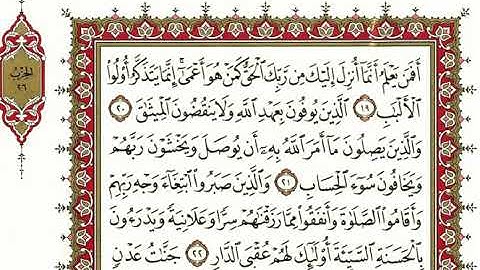 الحِزْبُ
٢٦
أَفَمَن يَعْلَمُ أَنَّمَآ أُنزِلَ إِلَيْكَ مِن رَّبِّكَ ٱلْحَقُّ كَمَنْ هُوَ أَعْمَىٰٓ ۚ إِنَّمَا يَتَذَكَّرُ أُو۟لُوا۟
ٱلْأَلْبَٰبِ ١٩ ٱلَّذِينَ يُوفُونَ بِعَهْدِ ٱللَّهِ وَلَا يَنقُضُونَ ٱلْمِيثَٰقَ ٢٠
وَٱلَّذِينَ يَصِلُونَ مَآ أَمَرَ ٱللَّهُ بِهِۦٓ أَن يُوصَلَ وَيَخْشَوْنَ رَبَّهُمْ
وَيَخَافُونَ سُوٓءَ ٱلْحِسَابِ ٢١ وَٱلَّذِينَ صَبَرُوا۟ ٱبْتِغَآءَ وَجْهِ رَبِّهِمْ
وَأَقَامُوا۟ ٱلصَّلَوٰةَ وَأَنفَقُوا۟ مِمَّا رَزَقْنَٰهُمْ سِرًّا وَعَلَانِيَةً وَيَدْرَءُونَ
بِٱلْحَسَنَةِ ٱلسَّيِّئَةَ أُو۟لَٰٓئِكَ لَهُمْ عُقْبَى ٱلدَّارِ ٢٢ جَنَّٰتُ عَدْنٍ